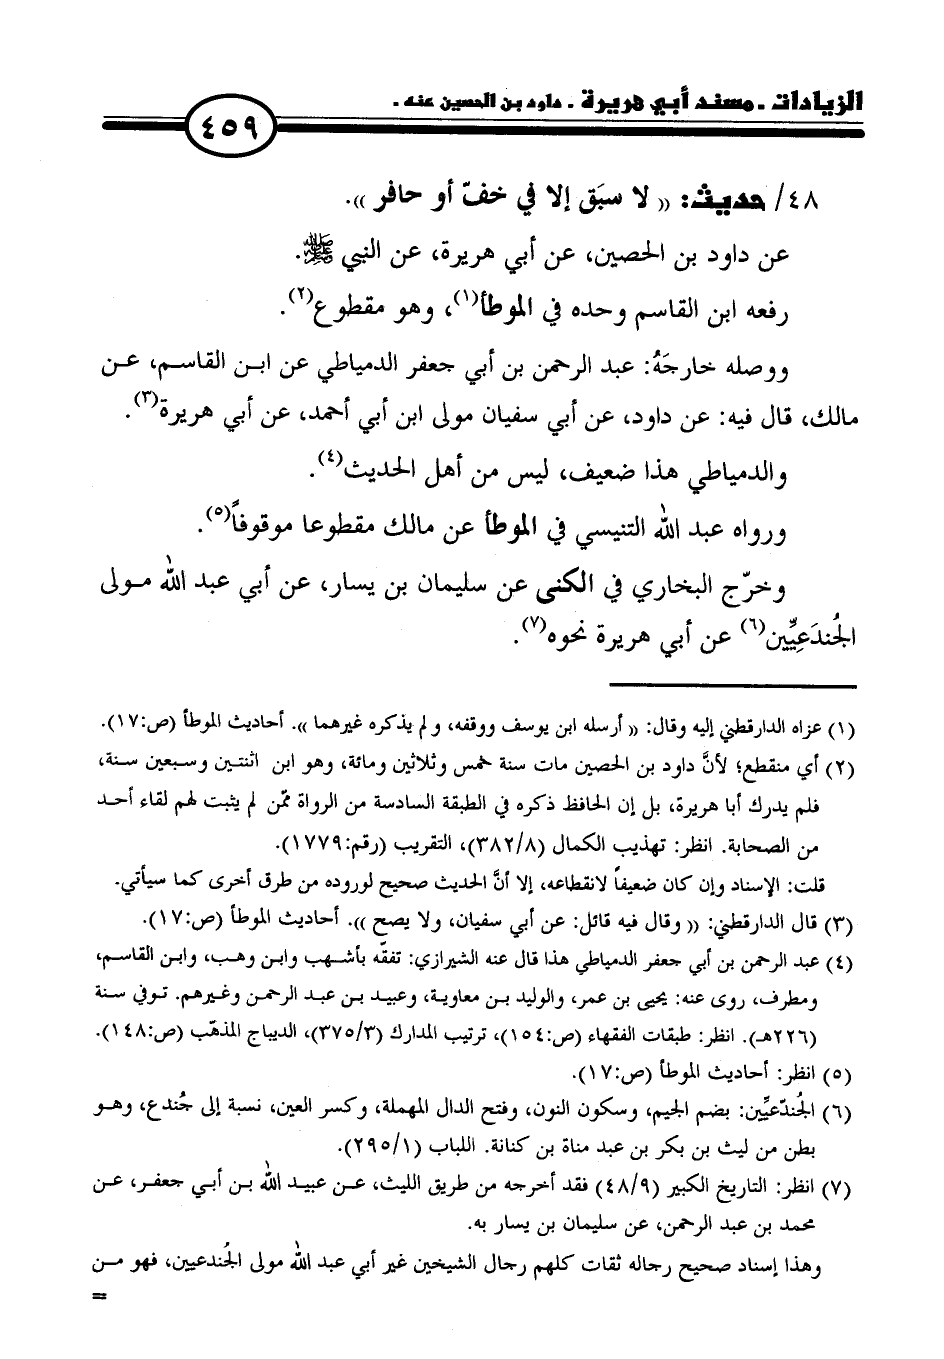 الزيادات ـ مسند أبي هريرة ـ داود بن الحصين عنه ـ
٤٥٩
٤٨/ حديث: « لا سبَق إلا في خفّ أو حافر ».
عن داود بن الحصين، عن أبي هريرة، عن النبي ﷺ.
رفعه ابن القاسم وحده في الموطأ(١)، وهو مقطوع(٢).
ووصله خارجَهُ: عبد الرحمن بن أبي جعفر الدمياطي عن ابن القاسم، عن
مالك، قال فيه: عن داود، عن أبي سفيان مولى ابن أبي أحمد، عن أبي هريرة(٣).
والدمياطي هذا ضعيف، ليس من أهل الحديث(٤).
ورواه عبد الله التنيسي في الموطأ عن مالك مقطوعا موقوفاً(٥).
وخرّج البخاري في الكنى عن سليمان بن يسار، عن أبي عبد الله مولى
الجُندَعِيِّين(٦) عن أبي هريرة نحوه(٧).
(١) عزاه الدارقطني إليه وقال: « أرسله ابن يوسف ووقفه، ولم يذكره غيرهما ». أحاديث الموطأ (ص:١٧).
(٢) أي منقطع؛ لأنَّ داود بن الحصين مات سنة خمس وثلاثين ومائة، وهو ابن اثنتين وسبعين سنة،
فلم يدرك أبا هريرة، بل إن الحافظ ذكره في الطبقة السادسة من الرواة ممّن لم يثبت لهم لقاء أحد
من الصحابة. انظر: تهذيب الكمال (٣٨٢/٨)، التقريب (رقم:١٧٧٩).
قلت: الإسناد وإن كان ضعيفاً لانقطاعه، إلا أنَّ الحديث صحيح لوروده من طرق أخرى كما سيأتي.
(٣) قال الدارقطني: « وقال فيه قائل: عن أبي سفيان، ولا يصح ». أحاديث الموطأ (ص:١٧).
(٤) عبد الرحمن بن أبي جعفر الدمياطي هذا قال عنه الشيرازي: تفقّه بأشهب وابن وهب، وابن القاسم،
ومطرف، روى عنه: يحيى بن عمر، والوليد بن معاوية، وعبيد بن عبد الرحمن وغيرهم. توفي سنة
(٢٢٦هـ). انظر: طبقات الفقهاء (ص:١٥٤)، ترتيب المدارك (٣٧٥/٣)، الديباج المذهّب (ص:١٤٨).
(٥) انظر: أحاديث الموطأ (ص:١٧).
(٦) الجُندَعيِّين: بضم الجيم، وسكون النون، وفتح الدال المهملة، وكسر العين، نسبة إلى جُندع، وهو
بطن من ليث بن بكر بن عبد مناة بن كنانة. اللباب (٢٩٥/١).
(٧) انظر: التاريخ الكبير (٤٨/٩) فقد أخرجه من طريق الليث، عن عبيد الله بن أبي جعفر، عن
محمد بن عبد الرحمن، عن سليمان بن يسار به.
وهذا إسناد صحيح رجاله ثقات كلهم رجال الشيخين غير أبي عبد الله مولى الجُندعيين، فهو من
=